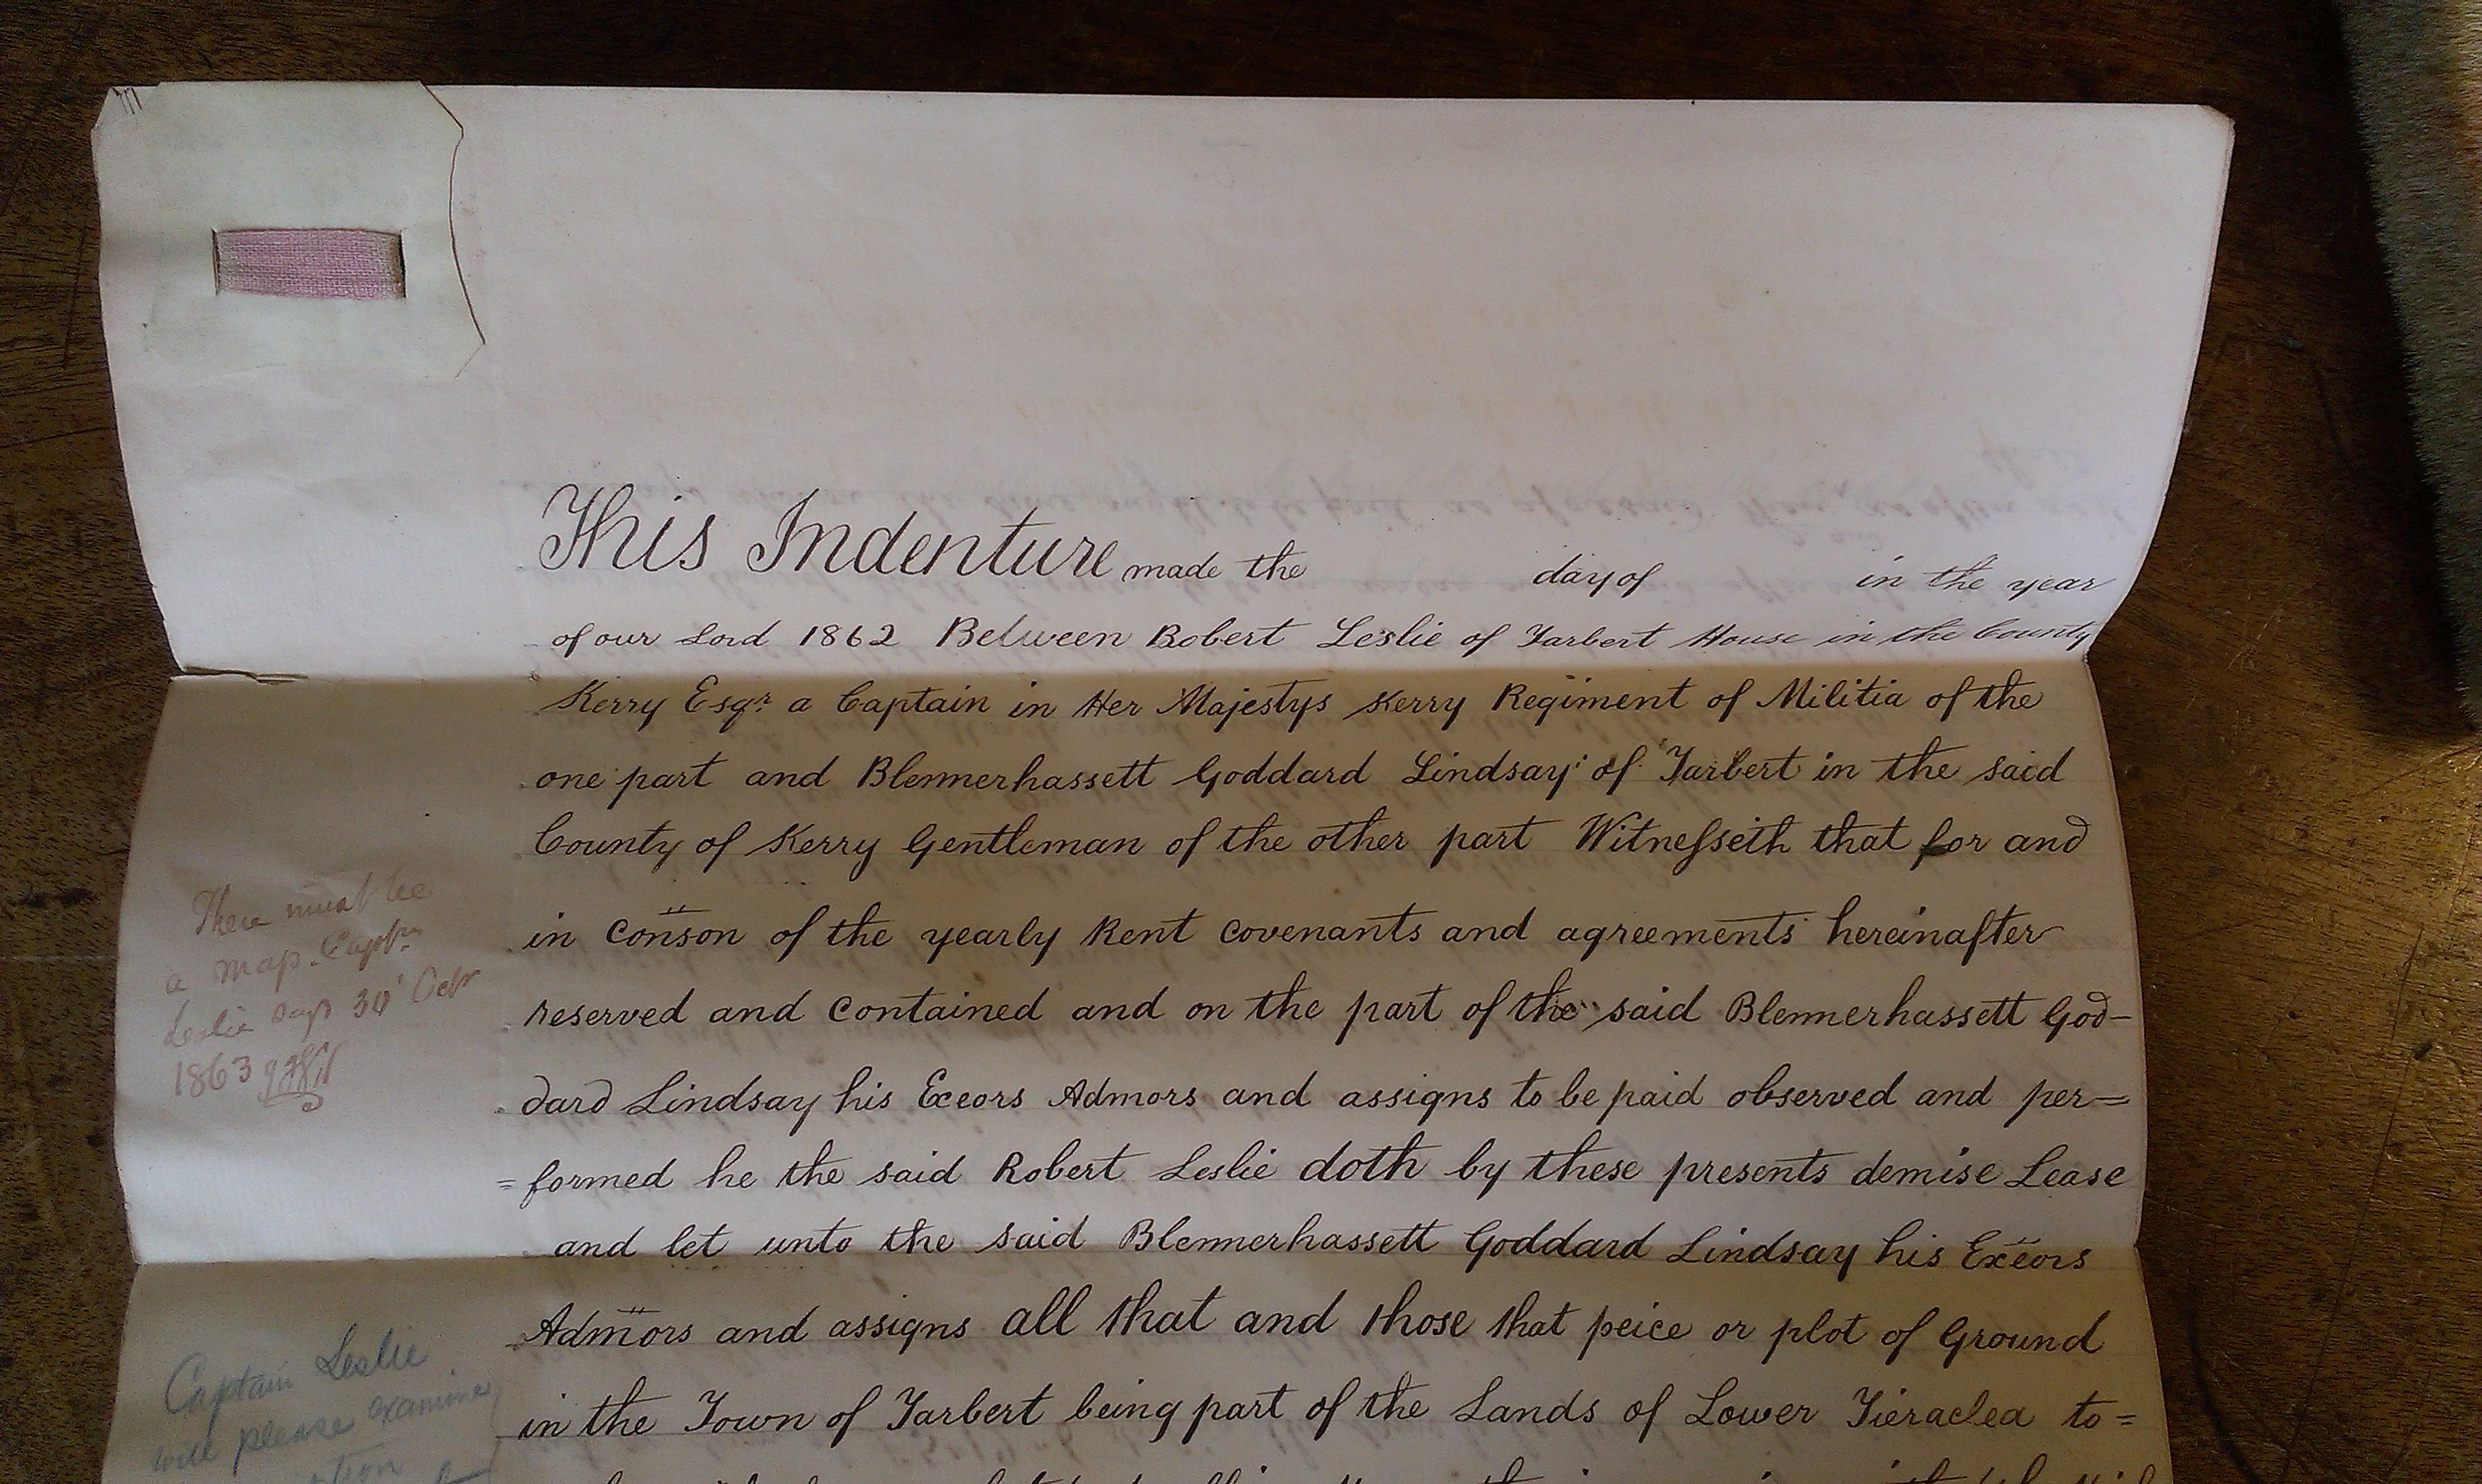 This Indenture made the day of in the year
of our Lord 1862 Between Robert Leslie of Tarbert House in the County
Kerry Esqr a Captain in Her Majestys Kerry Regiment of Militia of the
one part and Blennerhassett Goddard Lindsay of Tarbert in the said
County of Kerry Gentleman of the other part Witnesseth that for and
in conson of the yearly Rent covenants and agreements hereinafter
reserved and contained and on the part of the said Blennerhassett God-
dard Lindsay his Exeors Admors and assigns to be paid observed and per=
=formed he the said Robert Leslie doth by these presents demise Lease
and let unto the said Blennerhassett Goddard Lindsay his Exeors
Admors and assigns all that and those that peice or plot of Ground
in the Town of Tarbert being part of the Lands of Lower Tieraclea to=
There must be
a map Captn
Leslie says 30 Octr
1863
Captain Leslie
will please examine